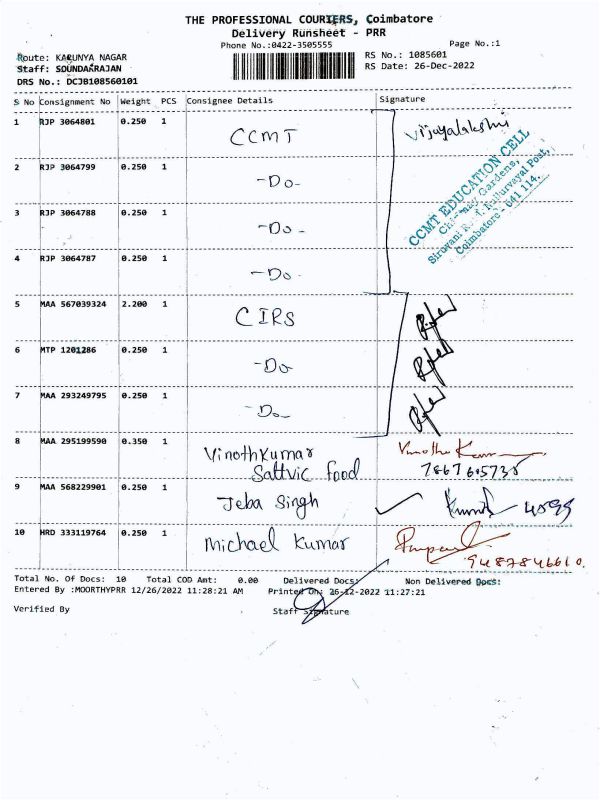 THE PROFESSIONAL COURIERS, Coimbatore
Delivery Runsheet - PRR
Phone No.:0422-3505555
Page No.:1
Route: KARUNYA NAGAR
RS No.: 1085601
Staff: SOUNDARRAJAN
RS Date: 26-Dec-2022
DRS No.: DCJB108560101
S No Consignment No Weight PCS Consignee Details Signature
1 RJP 3064801 0.250 1 CCMT Vijayalakshmi
2 RJP 3064799 0.250 1 -Do-
3 RJP 3064788 0.250 1 -Do-
4 RJP 3064787 0.250 1 -Do-
CCMT EDUCATION CELL
Gardens,
Siruvani Nallurvayal Post,
Coimbatore - 641 114.
5 MAA 567039324 2.200 1 CIRS
6 MTP 1201286 0.250 1 -Do-
7 MAA 293249795 0.250 1 -Do-
8 MAA 295199590 0.350 1 Vinothkumar
Sattvic food
9 MAA 568229901 0.250 1 Jeba Singh
10 HRD 333119764 0.250 1 Michael Kumar
9487846610.
Total No. Of Docs: 10 Total COD Amt: 0.00 Delivered Docs: Non Delivered Docs:
Entered By :MOORTHYPRR 12/26/2022 11:28:21 AM Printed On: 26-12-2022 11:27:21
Verified By Staff Signature